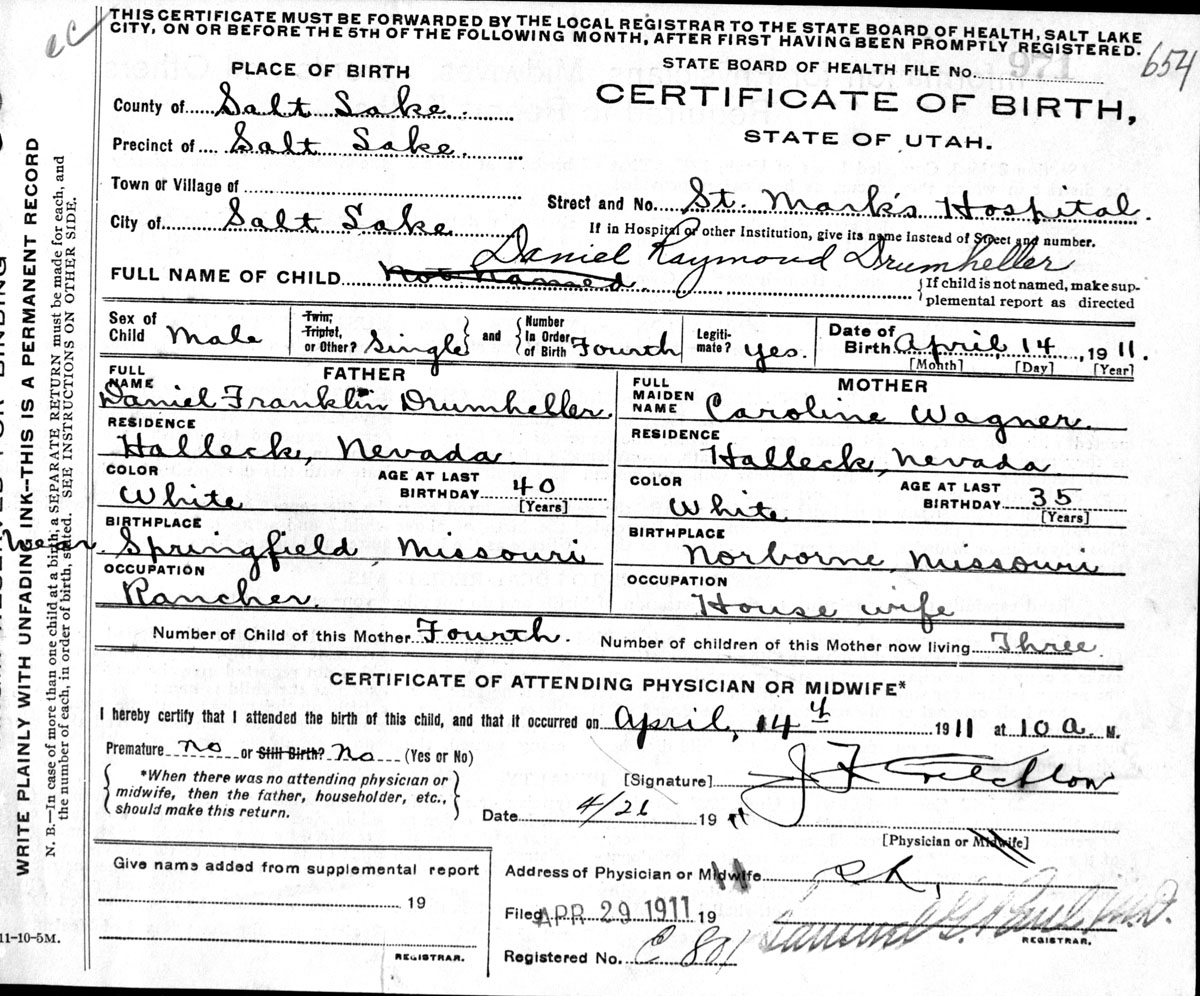 THIS CERTIFICATE MUST BE FORWARDED BY THE LOCAL REGISTRAR TO THE STATE BOARD OF HEALTH, SALT LAKE
CITY, ON OR BEFORE THE 5TH OF THE FOLLOWING MONTH, AFTER FIRST HAVING BEEN PROMPTLY REGISTERED.
PLACE OF BIRTH
STATE BOARD OF HEALTH FILE No. 971 654
County of Salt Lake.
CERTIFICATE OF BIRTH,
STATE OF UTAH.
Precinct of Salt Lake.
Town or Village of
Street and No. St. Mark's Hospital.
City of Salt Lake
If in Hospital or other Institution, give its name instead of Street and number.
Daniel Raymond Drumheller
FULL NAME OF CHILD Not Named.
If child is not named, make sup-
plemental report as directed
Sex of Child Male
Twin, Triplet, or Other? Single and Number In Order of Birth Fourth
Legiti-mate? yes.
Date of Birth April, 14, 1911.
[Month] [Day] [Year]
FATHER
FULL NAME Daniel Franklin Drumheller.
RESIDENCE
Halleck, Nevada
COLOR White
AGE AT LAST BIRTHDAY 40 [Years]
BIRTHPLACE
near Springfield, Missouri
OCCUPATION
Rancher.
MOTHER
FULL MAIDEN NAME Caroline Wagner.
RESIDENCE
Halleck, Nevada
COLOR White
AGE AT LAST BIRTHDAY 35 [Years]
BIRTHPLACE
Norborne, Missouri
OCCUPATION
House wife
Number of Child of this Mother Fourth. Number of children of this Mother now living Three.
CERTIFICATE OF ATTENDING PHYSICIAN OR MIDWIFE*
I hereby certify that I attended the birth of this child, and that it occurred on April, 14 1911 at 10 a. M.
Premature no or Still Birth? No (Yes or No)
*When there was no attending physician or
midwife, then the father, householder, etc.,
should make this return.
[Signature] J F
Date 4/26 1911
[Physician or Midwife]
Give name added from supplemental report
19
REGISTRAR.
Address of Physician or Midwife
Filed APR 29 1911 19
REGISTRAR.
Registered No. C 801
WRITE PLAINLY WITH UNFADING INK—THIS IS A PERMANENT RECORD
N. B.—In case of more than one child at a birth, a SEPARATE RETURN must be made for each, and
the number of each, in order of birth, stated. SEE INSTRUCTIONS ON OTHER SIDE.
11-10-5M.